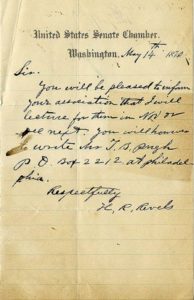 United States Senate Chamber.
Washington, May 14th 1870
Sir.
You will be pleased to inform
your association that I will
lecture for them in or
next. You will however
write Mr T. B. Pugh
P O Box 2212 at philadel-
phia.
Respectfully
H. R. Revels